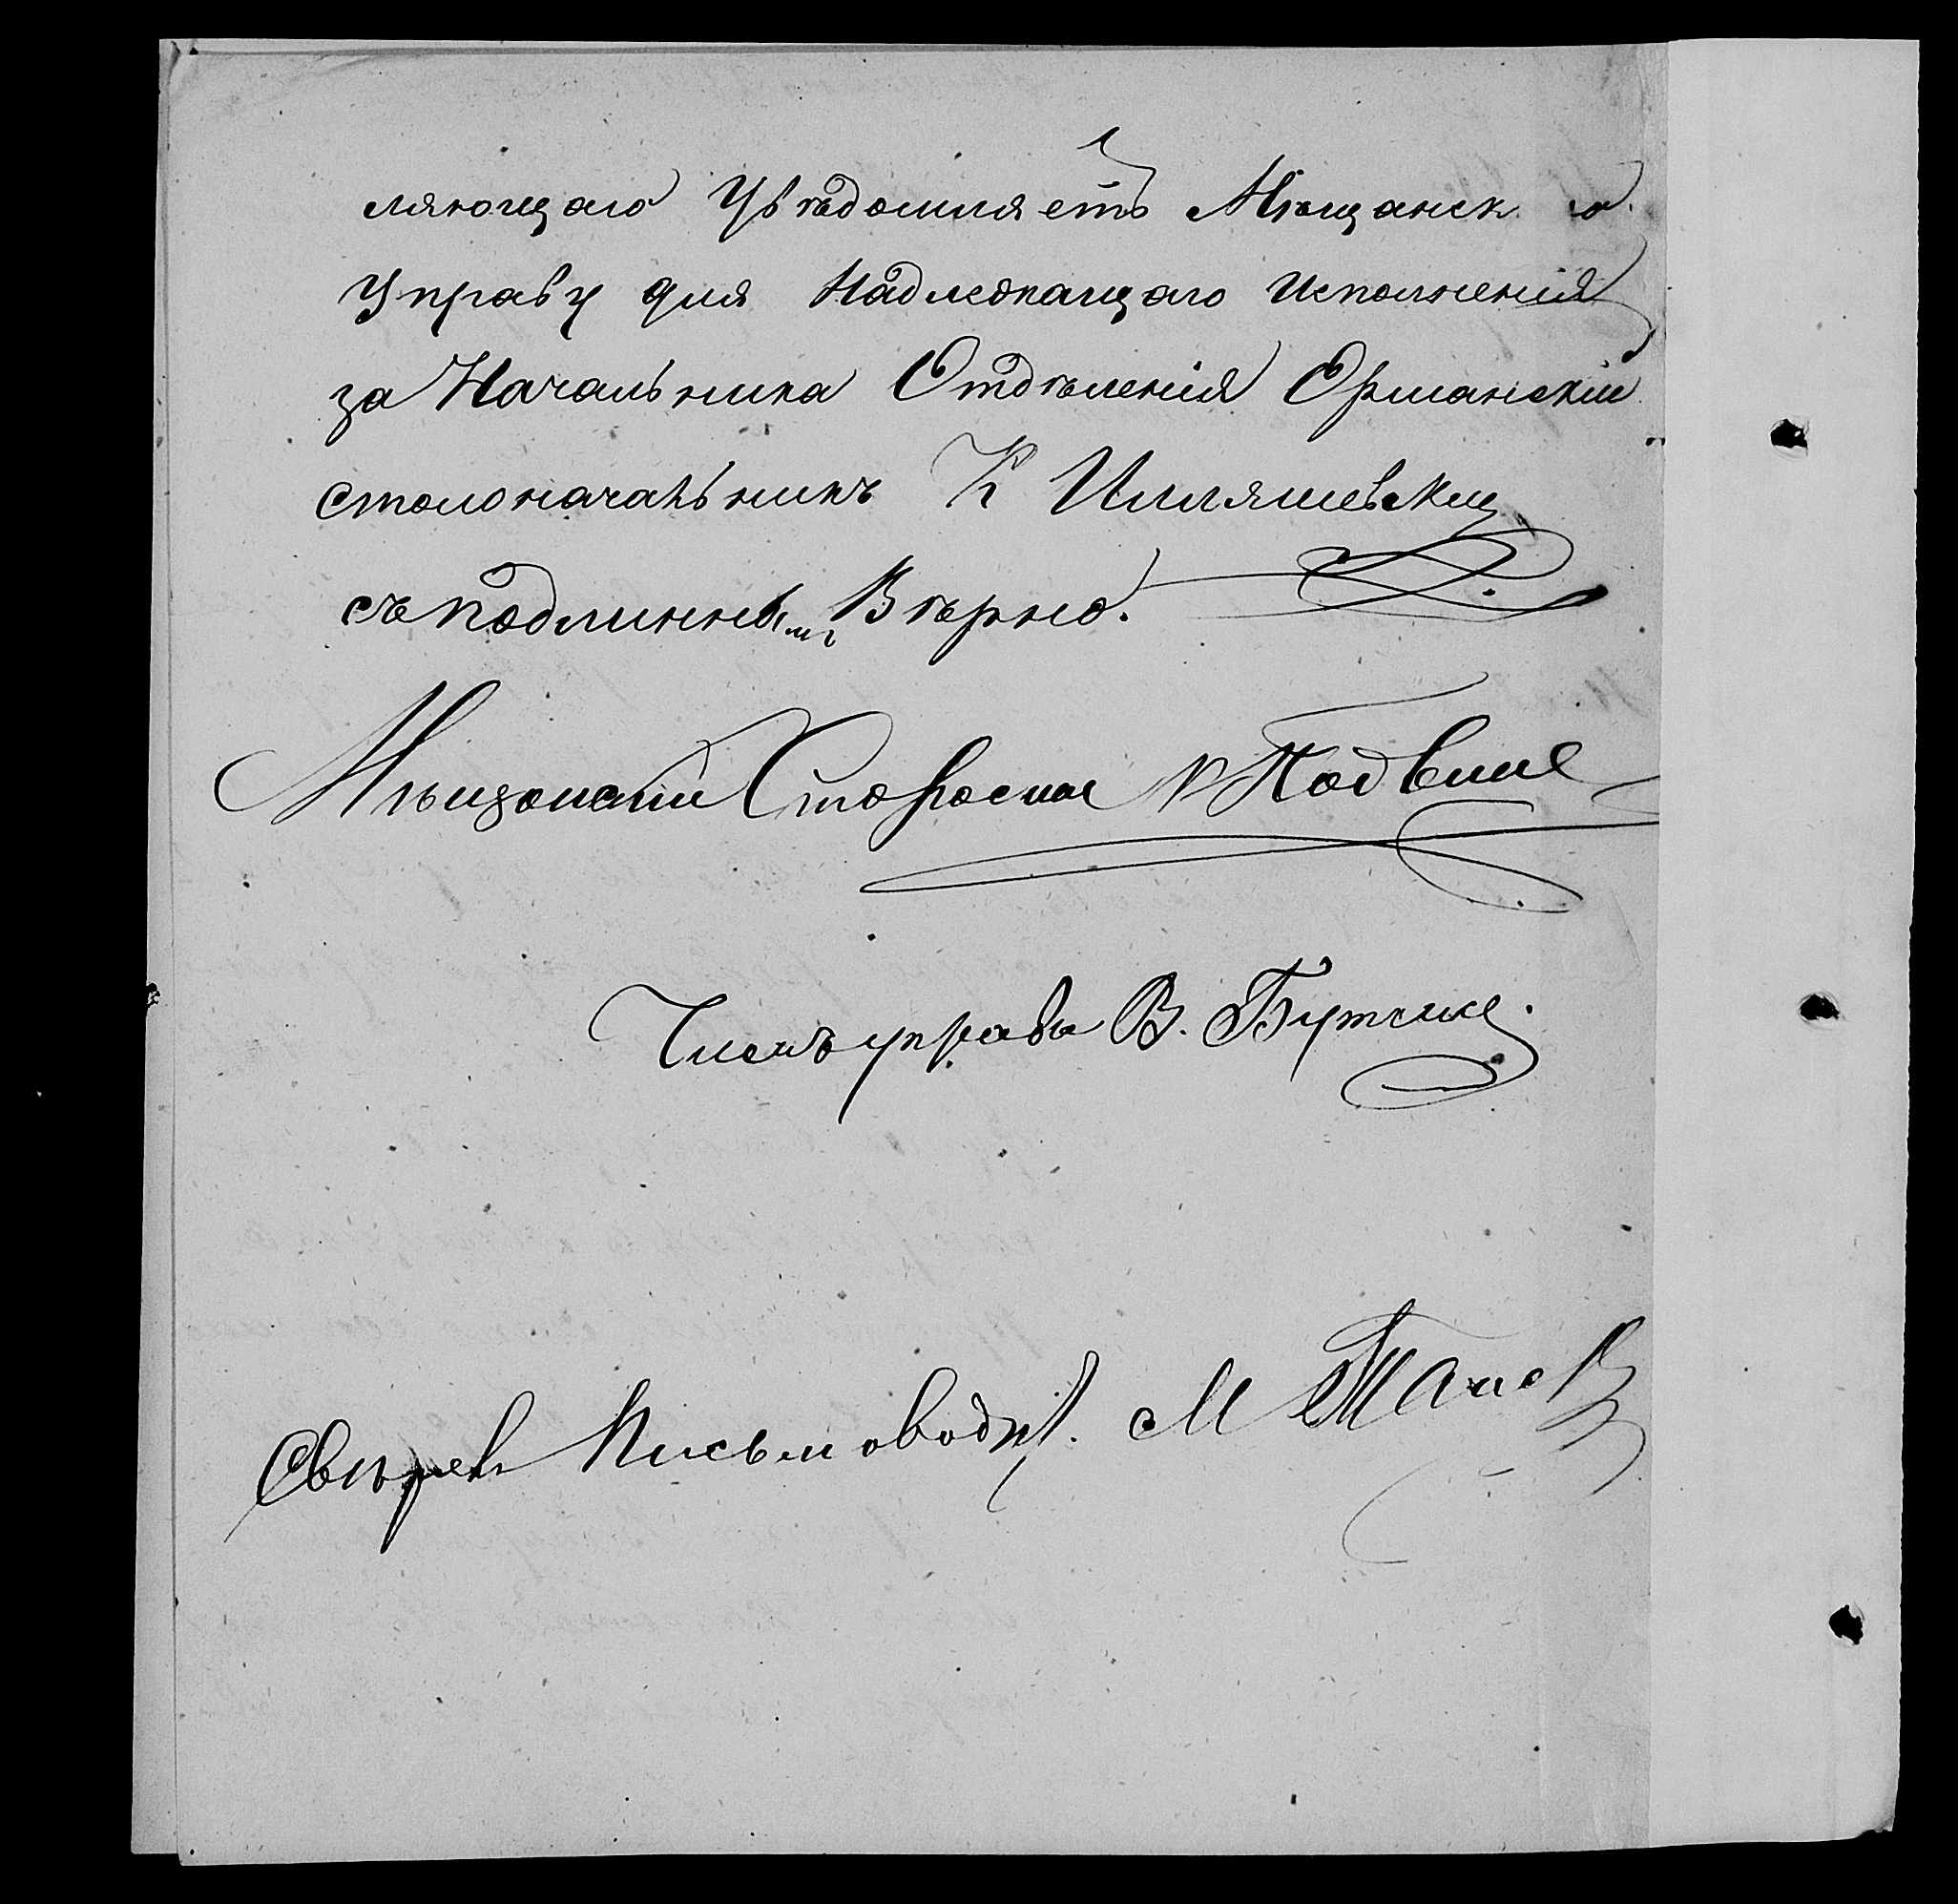 ляющаго Увѣдомляетъ Мѣщанск
Управу для Надлежащаго Исполненія
за Начальника Отдѣленія Ерманскій
столоначальникъ К Илляшевскій
съ подлиннымъ Вѣрно.
Мѣщанскій Староста
Членъ управы В.
Свѣрялъ Письмовод. М